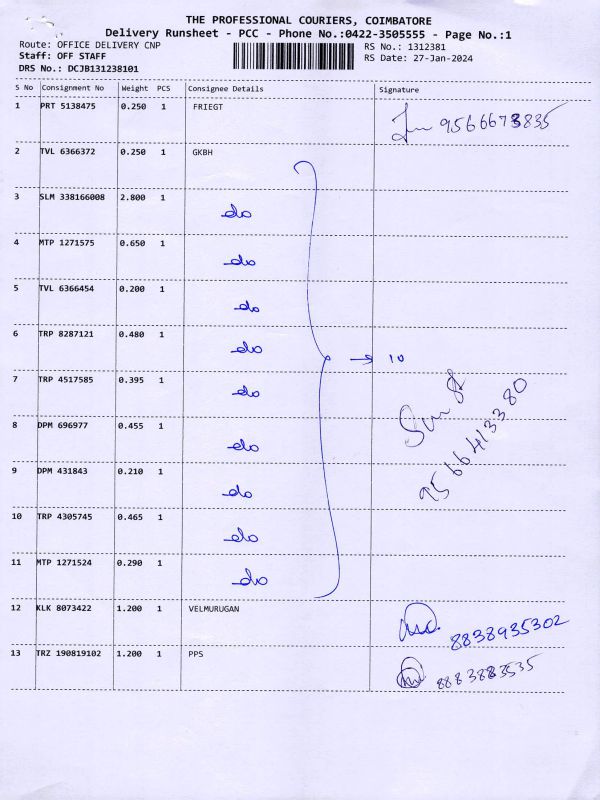 THE PROFESSIONAL COURIERS, COIMBATORE
Delivery Runsheet - PCC - Phone No.:0422-3505555 - Page No.:1
Route: OFFICE DELIVERY CNP
Staff: OFF STAFF
DRS No.: DCJB131238101
RS No.: 1312381
RS Date: 27-Jan-2024
S No Consignment No Weight PCS Consignee Details Signature
1 PRT 5138475 0.250 1 FRIEGT 9566673835
2 TVL 6366372 0.250 1 GKBH
3 SLM 338166008 2.800 1 do
4 MTP 1271575 0.650 1 do
5 TVL 6366454 0.200 1 do
6 TRP 8287121 0.480 1 do → 10
7 TRP 4517585 0.395 1 do
8 DPM 696977 0.455 1 do
9566413380
9 DPM 431843 0.210 1 do
10 TRP 4305745 0.465 1 do
11 MTP 1271524 0.290 1 do
12 KLK 8073422 1.200 1 VELMURUGAN 8838935302
13 TRZ 190819102 1.200 1 PPS 8883883535